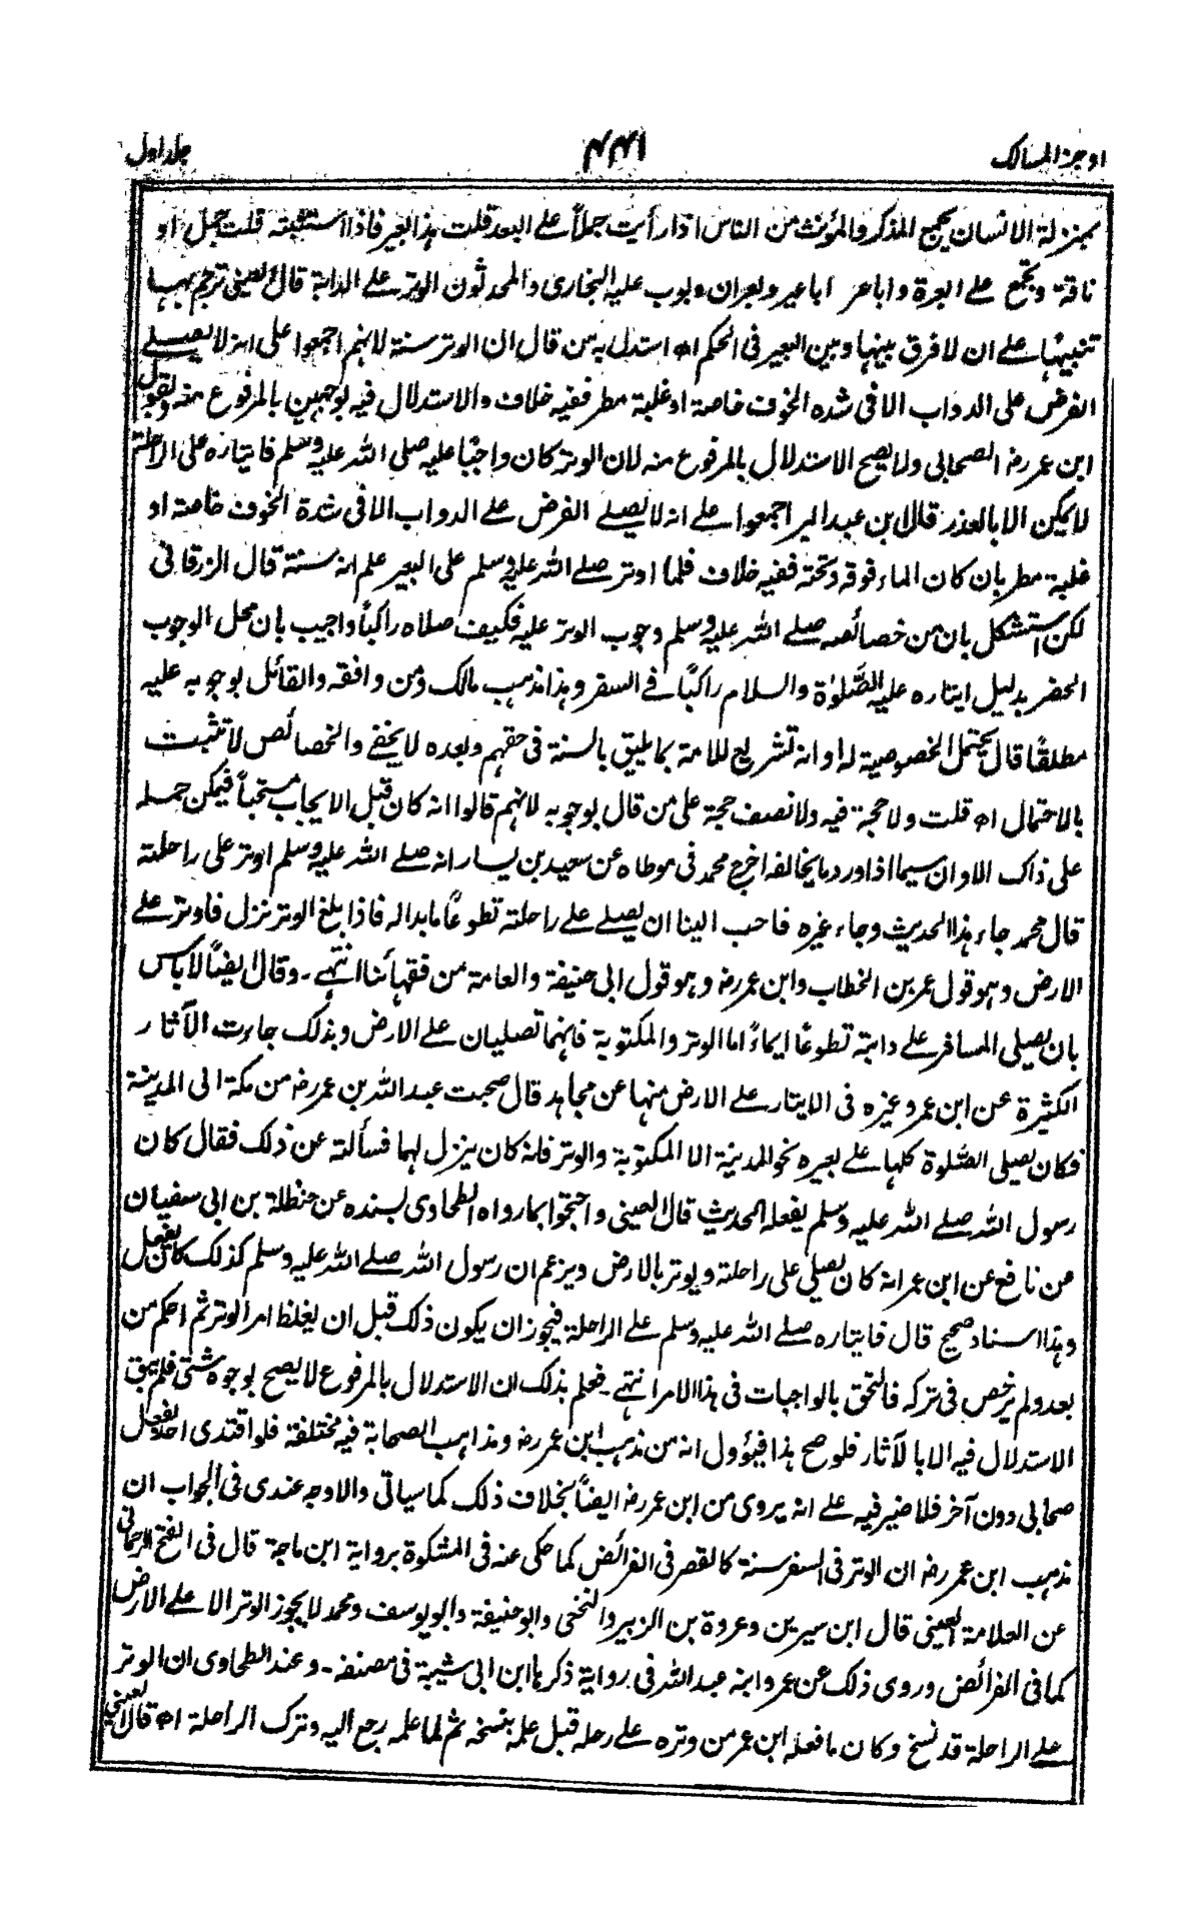 اوجز المسالك
جلد اول
بمنزلة الانسان يجمع المذكر والمؤنث من الناس اذا رأيت جملاً على البعد قلت هذا بعير فاذا استثبته قلت جمل او
ناقة ويجمع على ابعرة واباعر اباعير وبعران وبوب عليه البخارى والمحدثون الوتر على الدابة قال العينى ترجم بهما
تنبيهًا على ان لا فرق بينها وبين البعير فى الحكم اه استدل به من قال ان الوتر سنة لانهم اجمعوا على انه لا يصلى
الفرض على الدواب الا فى شده الخوف خاصة او غلبة مطر ففيه خلاف والاستدلال فيه بوجهين بالمرفوع منه وبقول
ابن عمر رضـ الصحابى ولا يصح الاستدلال بالمرفوع منه لان الوتر كان واجبًا عليه صلى الله عليه وسلم فايتاره على الراحلة
لا يمكن الا بالعذر قال ابن عبد البر اجمعوا على انه لا يصلى الفرض على الدواب الا فى شدة الخوف خاصة او
غلبة مطر بان كان الماء فوقه وتحته ففيه خلاف فلما اوتر صلى الله عليه وسلم على البعير علم انه سنة قال الزرقانى
لكن استشكل بان من خصائصه صلى الله عليه وسلم وجوب الوتر عليه فكيف صلاه راكباً واجيب بان محل الوجوب
الحضر بدليل ايتاره عليه الصّلوٰة والسلام راكبًا فى السفر وهذا مذهب مالك ومن وافقه والقائل بوجوبه عليه
مطلقًا قال يحتمل الخصوصية له او انه تشريع للامة بما يليق بالسنة فى حقهم وبعده لا يخفى والخصائص لا تثبت
بالاحتمال اه قلت ولا حجة فيه ولا نصف حجة على من قال بوجوبه لانهم قالوا انه كان قبل الايجاب مستحباً فيمكن حمله
على ذاك الاوان سيما اذا ورد ما يخالفه اخرج محمد فى موطاه عن سعيد بن يسار انه صلى الله عليه وسلم اوتر على راحلته
قال محمد جاء هذا الحديث وجاء غيره فاحب الينا ان يصلى على راحلته تطوعًا ما بداله فاذا بلغ الوتر نزل فاوتر على
الارض وهو قول عمر بن الخطاب وابن عمر رضـ وهو قول ابى حنيفة والعامة من فقهائنا انتهى۔ وقال ايضاً لا بأس
بان يصلى المسافر على دابته تطوعًا ايماءً اما الوتر والمكتوبة فانهما تصليان على الارض وبذلك جاءت الآثار
الكثيرة عن ابن عمر وغيره فى الايتار على الارض منها عن مجاهد قال صحبت عبد الله بن عمر رضـ من مكة الى المدينة
فكان يصلى الصّلوة كلها على بعيره نحو المدينة الا المكتوبة والوتر فانه كان ينزل لهما فسألته عن ذلك فقال كان
رسول الله صلى الله عليه وسلم يفعله الحديث قال العينى واحتجوا بما رواه الطحاوى بسنده عن حنظلة بن ابى سفيان
عن نافع عن ابن عمر انه كان يصلى على راحلته ويوتر بالارض ويزعم ان رسول الله صلى الله عليه وسلم كذلك كان يفعل
وهذا اسناد صحيح قال فايتاره صلى الله عليه وسلم على الراحلة فيجوز ان يكون ذلك قبل ان يغلظ امر الوتر ثم احكم من
بعد ولم يرخص فى تركه فالتحق بالواجبات فى هذا الامر انتهى۔ فعلم بذلك ان الاستدلال بالمرفوع لا يصح بوجوه شتى فلم يبق
الاستدلال فيه الا بالآثار فلو صح هذا فيؤول انه من مذهب ابن عمر رضـ ومذاهب الصحابة فيه مختلفة فلو اقتدى احد بفعل
صحابى دون آخر فلا ضير فيه على انه يروى من ابن عمر رضـ ايضاً بخلاف ذلك كما سياتى والاوجه عندى فى الجواب ان
مذهب ابن عمر رضـ ان الوتر فى السفر سنة كالقصر فى الفرائض كما حكى عنه فى المشكوة برواية ابن ماجة قال فى الفتح الرحمانى
عن العلامة العينى قال ابن سيرين وعروة بن الزبير والنخعى وابو حنيفة وابو يوسف ومحمد لا يجوز الوتر الا على الارض
كما فى الفرائض وروى ذلك عن عمر وابنه عبد الله فى رواية ذكرها ابن ابى شيبة فى مصنفه۔ وعند الطحاوى ان الوتر
على الراحلة قد نسخ وكان ما فعله ابن عمر من وتره على رحله قبل علمه بنسخه ثم لما علمه رجع اليه وترك الراحلة اه قال العينى